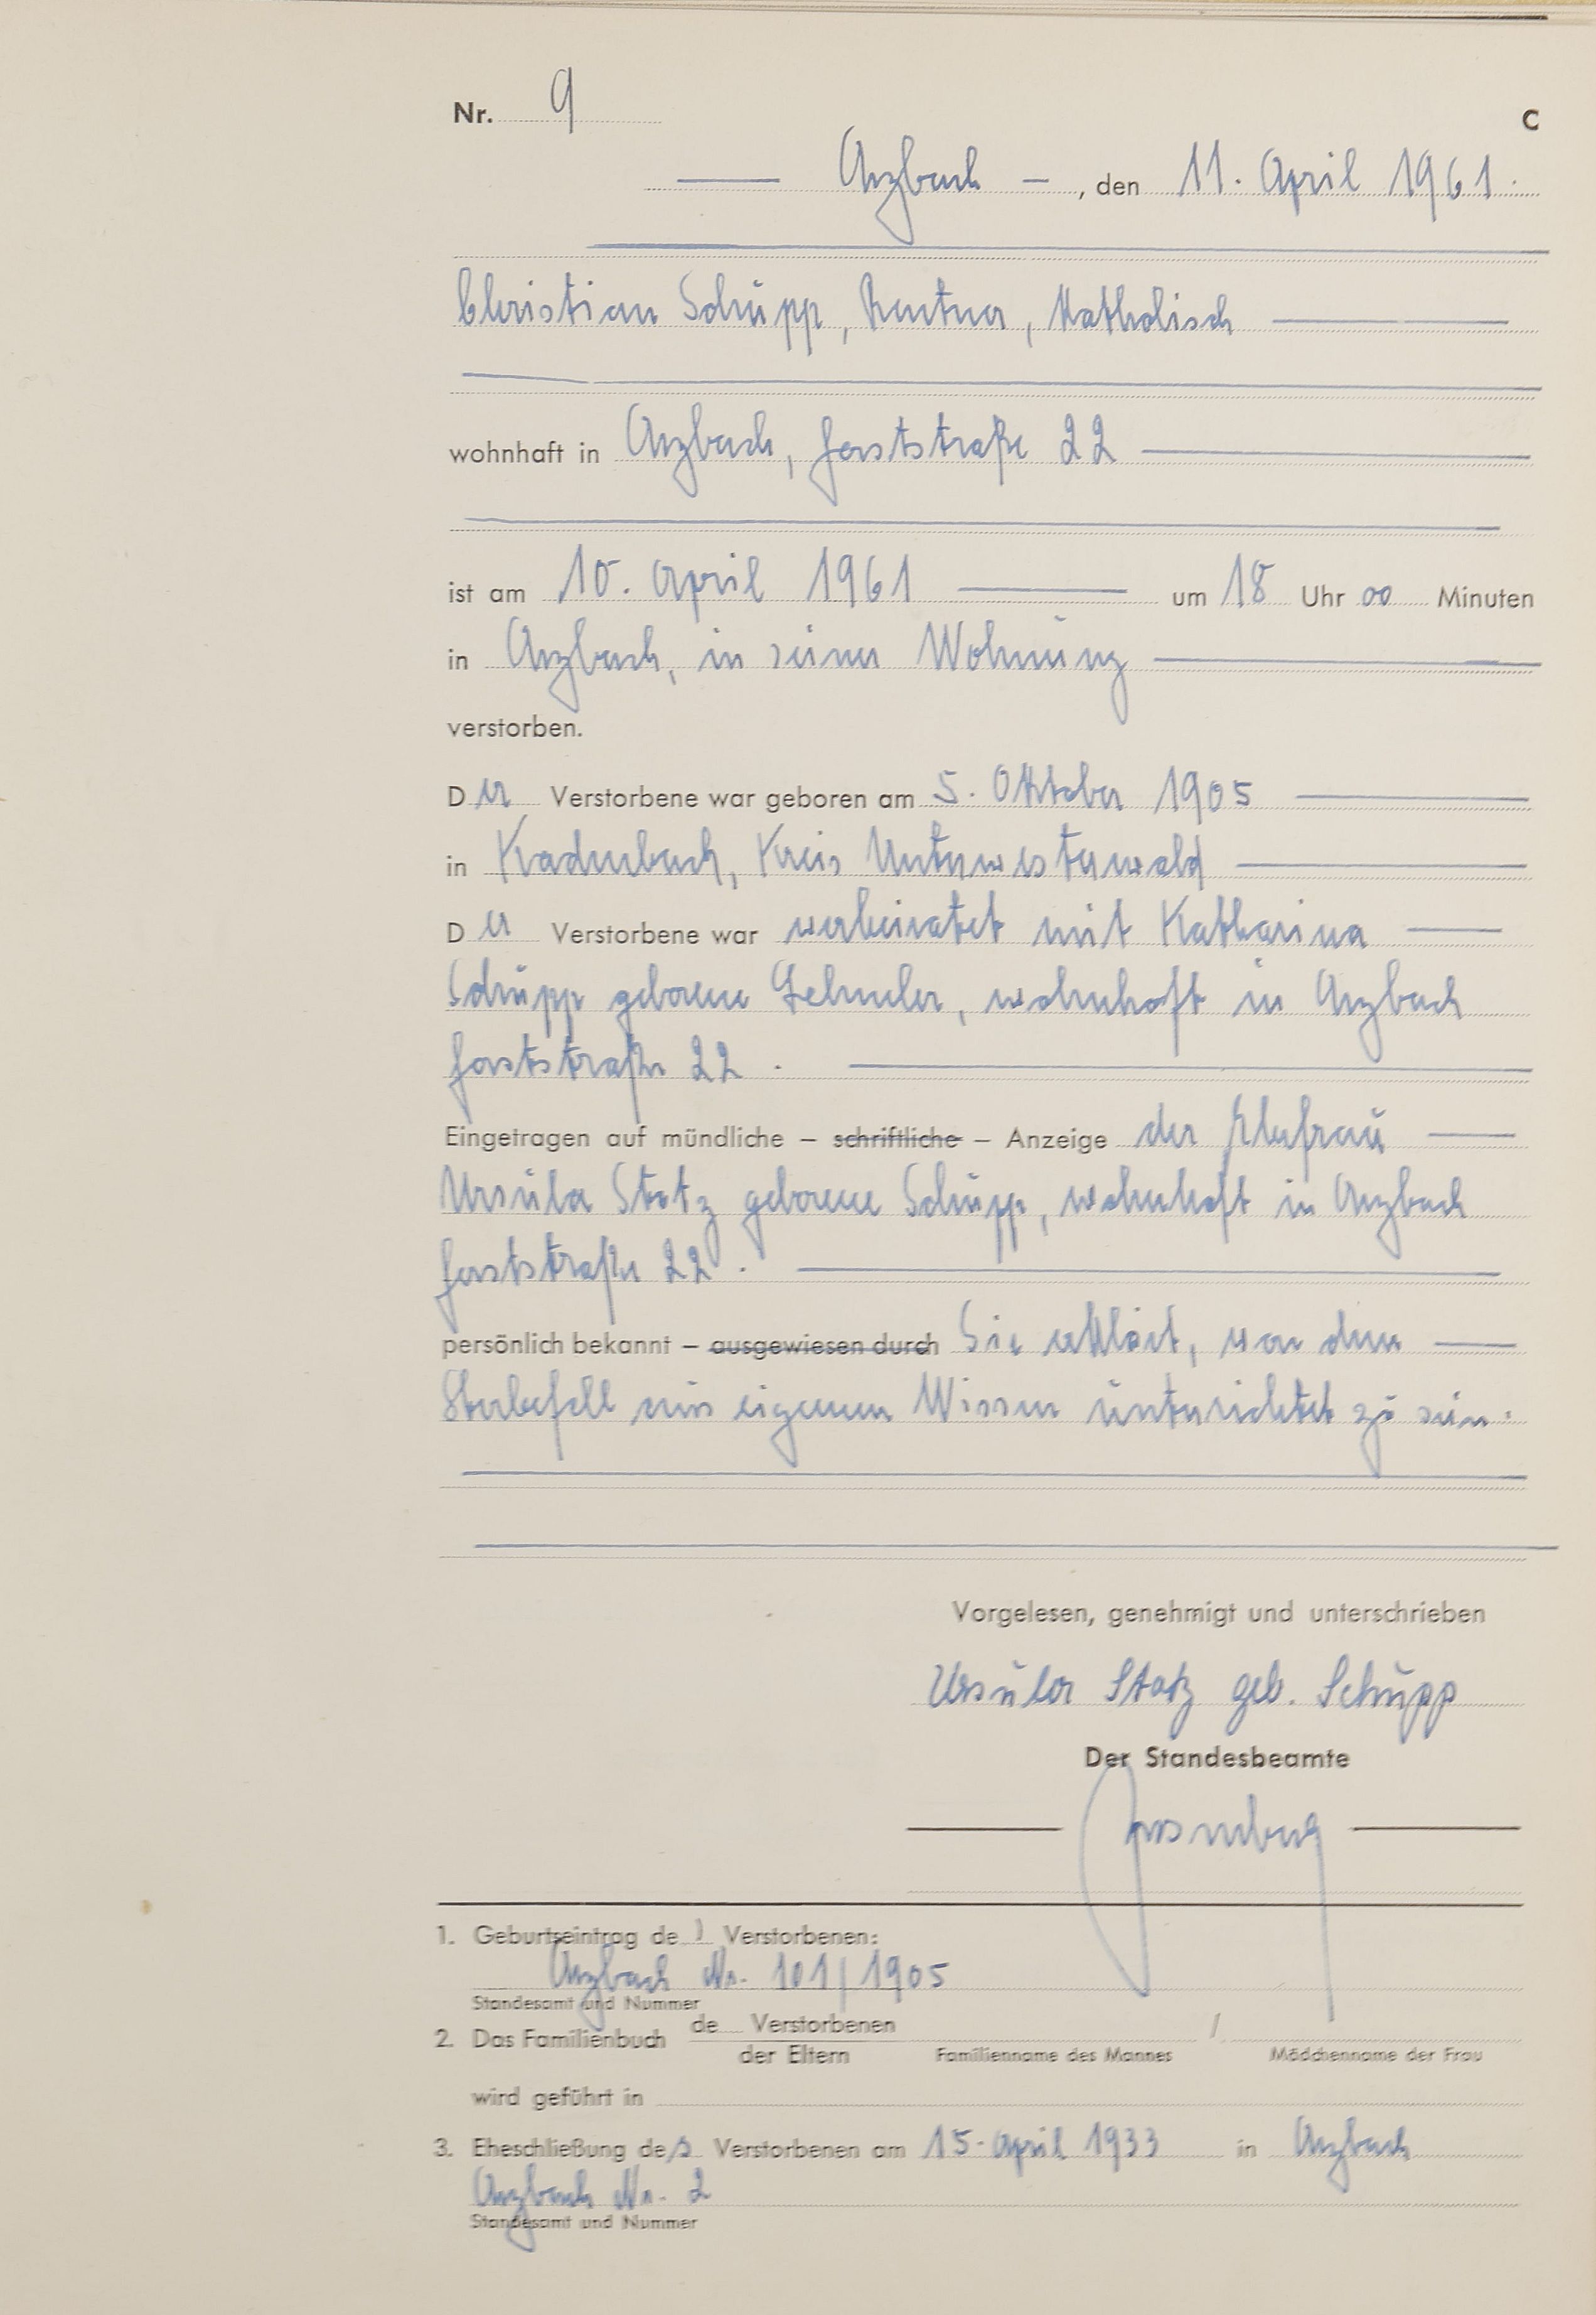 Nr. 9
C
Arzbach, den 11. April 1961.
Christian Schupp, Rentner, Katholisch
wohnhaft in Arzbach, Forststraße 22
ist am 10. April 1961 um 18 Uhr 00 Minuten
in Arzbach, in seiner Wohnung
verstorben.
Der Verstorbene war geboren am 5. Oktober 1905
in Kadenbach, Kreis Unterwesterwald
Der Verstorbene war verheiratet mit Katharina
Schupp geborene, wohnhaft in Arzbach
Forststraße 22.
Eingetragen auf mündliche – schriftliche – Anzeige der Ehefrau
Ursula Statz geborene Schupp, wohnhaft in Arzbach
Forststraße 22.
persönlich bekannt – ausgewiesen durch Sie erklärt, von dem
Sterbefall aus eigenem Wissen unterrichtet zu sein.
Vorgelesen, genehmigt und unterschrieben
Ursula Statz geb. Schupp
Der Standesbeamte
1. Geburtseintrag des Verstorbenen:
Arzbach Nr. 101/1905
Standesamt und Nummer
2. Das Familienbuch de Verstorbenen /
der Eltern Familienname des Mannes Mädchenname der Frau
wird geführt in
3. Eheschließung des Verstorbenen am 15. April 1933 in Arzbach
Arzbach Nr. 2
Standesamt und Nummer